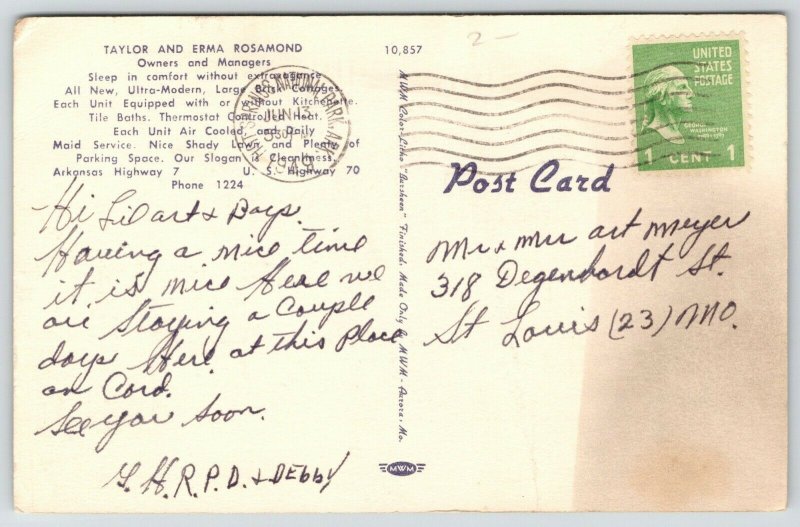 TAYLOR AND ERMA ROSAMOND
Owners and Managers
Sleep in comfort without extravagance
All New, Ultra-Modern, Large Brick Cottages
Each Unit Equipped with or without Kitchenette.
Tile Baths. Thermostat Controlled Heat.
Each Unit Air Cooled, and Daily
Maid Service. Nice Shady Lawn and Plenty of
Parking Space. Our Slogan is Cleanliness.
Arkansas Highway 7 U. S. Highway 70
Phone 1224
Hi Lil art & Boys.
Having a nice time
it is nice here we
are staying a couple
days here at this place
on Card.
See you soon.
G. H. R. P. D. & DEbby
10,857
MWM Color-Litho "Aursheen" Finished. Made Only by MWM - Aurora, Mo.
MWM
NATIONAL PARK, ARK.
JUN 13
1949
UNITED
STATES
POSTAGE
GEORGE
WASHINGTON
1789-1797
1 CENT 1
2-
Post Card
Mr & Mrs art Meyer
318 Degenhardt St.
St Louis (23) Mo.